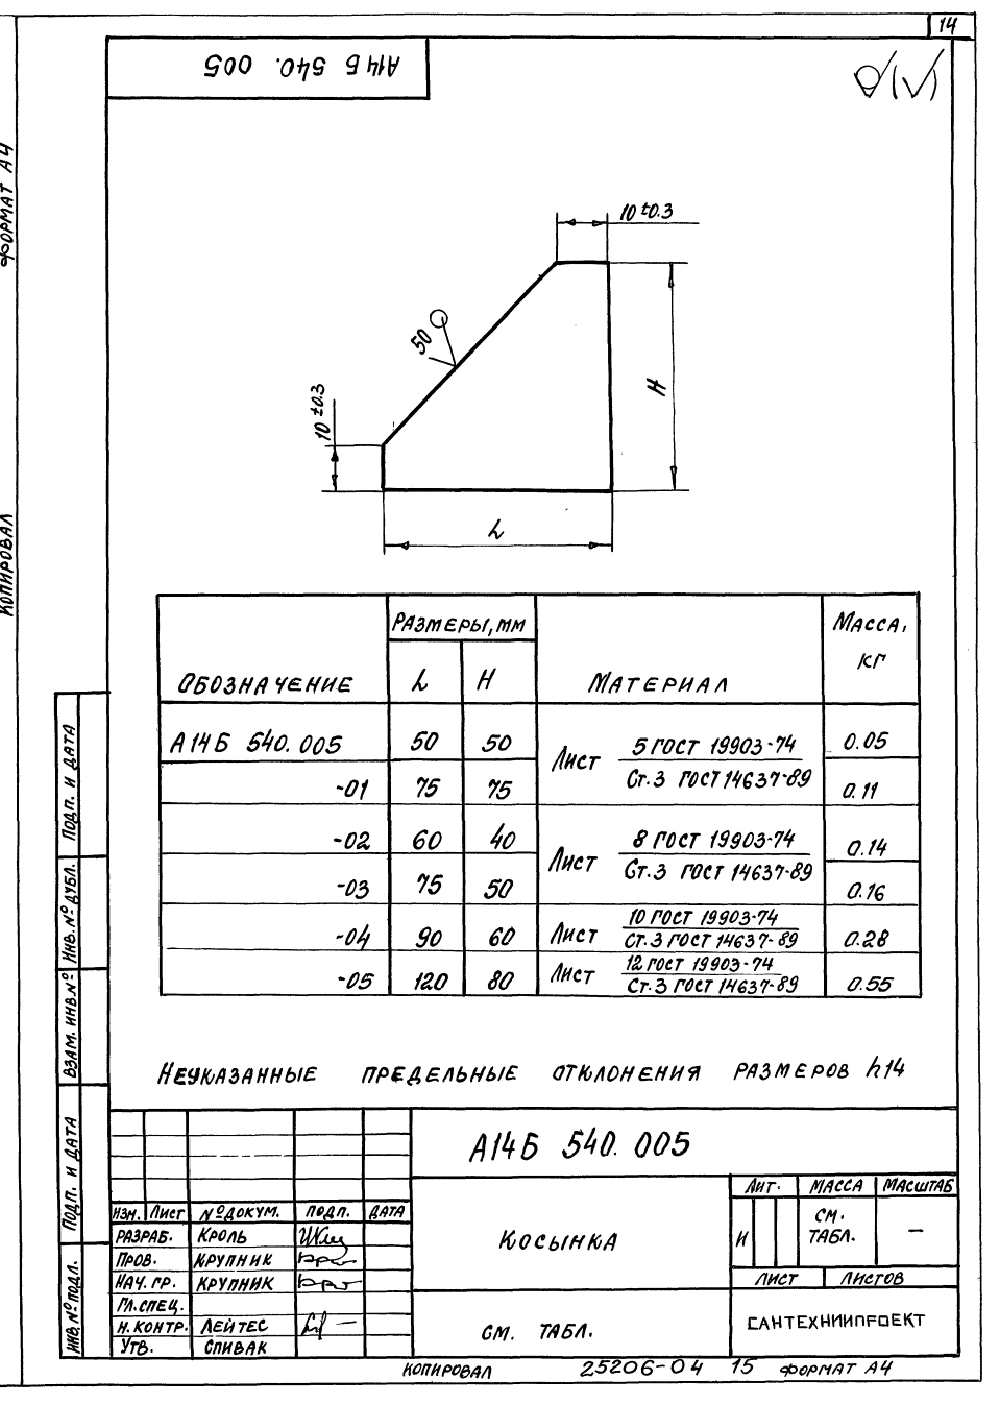 14
А14Б 540. 005
(√)
10 ±0.3
50
10 ±0.3
H
L
ФОРМАТ А4
КОПИРОВАЛ
ОБОЗНАЧЕНИЕ РАЗМЕРЫ, ММ МАТЕРИАЛ МАССА, КГ
L H
А14Б 540. 005 50 50 Лист 5 ГОСТ 19903-74 / Ст.3 ГОСТ 14637-89 0.05
-01 75 75 0.11
-02 60 40 Лист 8 ГОСТ 19903-74 / Ст.3 ГОСТ 14637-89 0.14
-03 75 50 0.16
-04 90 60 Лист 10 ГОСТ 19903-74 / Ст.3 ГОСТ 14637-89 0.28
-05 120 80 Лист 12 ГОСТ 19903-74 / Ст.3 ГОСТ 14637-89 0.55
НЕУКАЗАННЫЕ ПРЕДЕЛЬНЫЕ ОТКЛОНЕНИЯ РАЗМЕРОВ h14
ПОДП. И ДАТА
ИНВ. № ДУБЛ.
ВЗАМ. ИНВ. №
ПОДП. И ДАТА
ИНВ. № ПОДЛ.
А14Б 540. 005
ИЗМ. ЛИСТ № ДОКУМ. ПОДП. ДАТА
РАЗРАБ. КРОЛЬ
ПРОВ. КРУПНИК
НАЧ. ГР. КРУПНИК
ГЛ. СПЕЦ.
Н. КОНТР. ЛЕЙТЕС
УТВ. СПИВАК
КОСЫНКА
СМ. ТАБЛ.
ЛИТ. МАССА МАСШТАБ
И СМ. ТАБЛ. —
ЛИСТ ЛИСТОВ
САНТЕХНИИПРОЕКТ
КОПИРОВАЛ 25206-04 15 ФОРМАТ А4